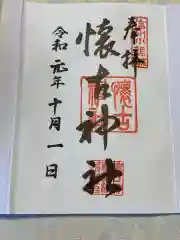 奉拝
懐古神社
令和元年十月一日